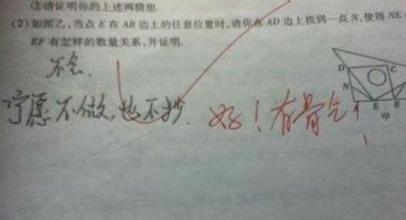 ③请证明你的上述两猜想.
(2)如图乙,当点 E 在 AB 边上的任意位置时,请你在 AD 边上找到一点 N,使得 NE=
EF 有怎样的数量关系,并证明.
不会、
宁愿不做,也不抄. 好!有骨气!
D C
N
A E B
甲